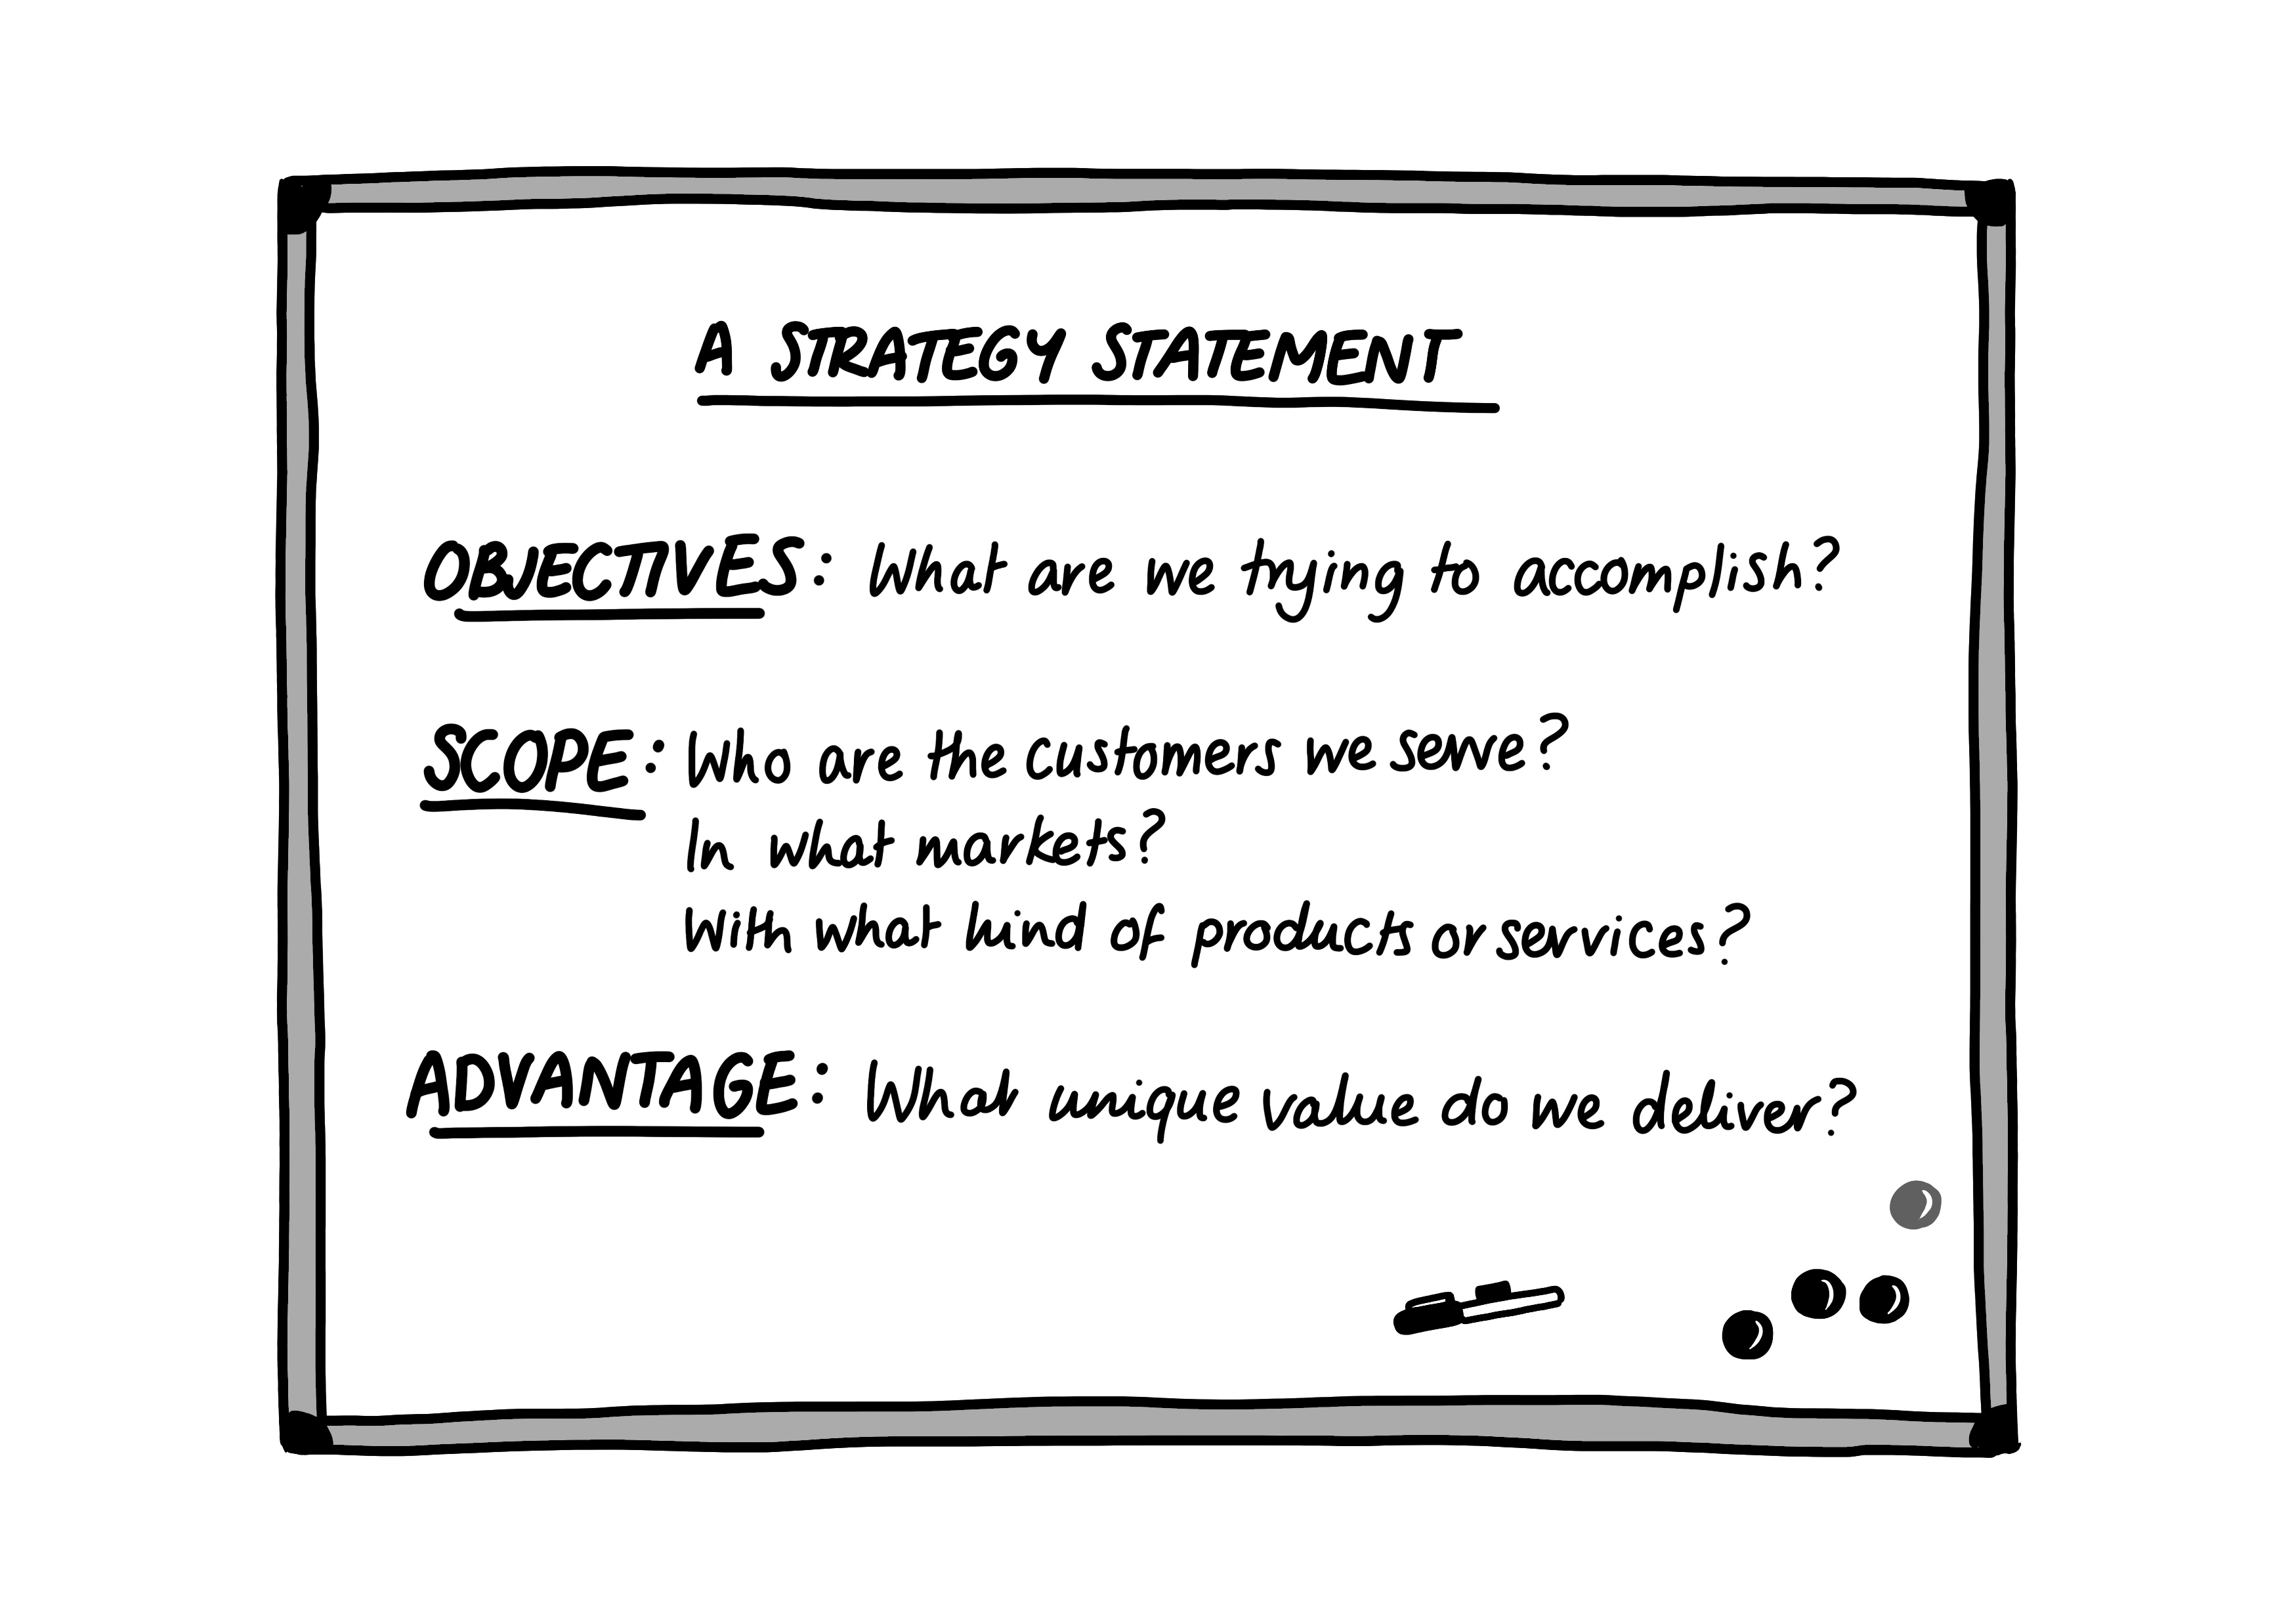 A STRATEGY STATEMENT
OBJECTIVES: What are we trying to accomplish?
SCOPE: Who are the customers we serve?
In what markets?
With what kind of products or services?
ADVANTAGE: What unique value do we deliver?